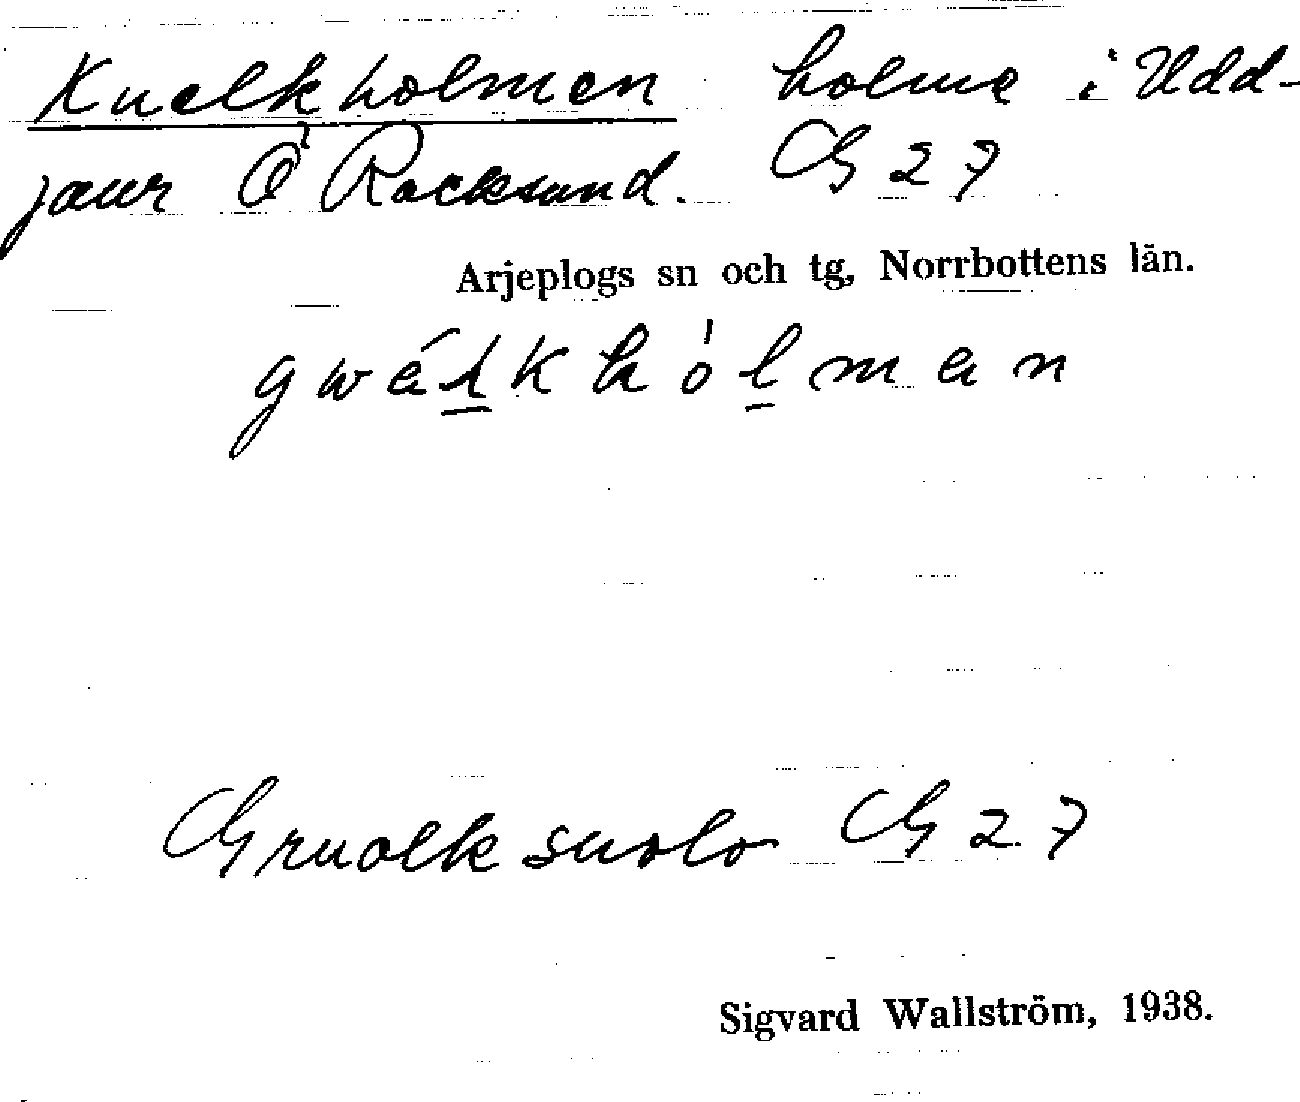 Kuelkholmen holme i Udd-
jaur Ö Racksund. G 27
Arjeplogs sn och tg, Norrbottens län.
gwálkhólman
Gruolksuolo G 27
Sigvard Wallström, 1938.